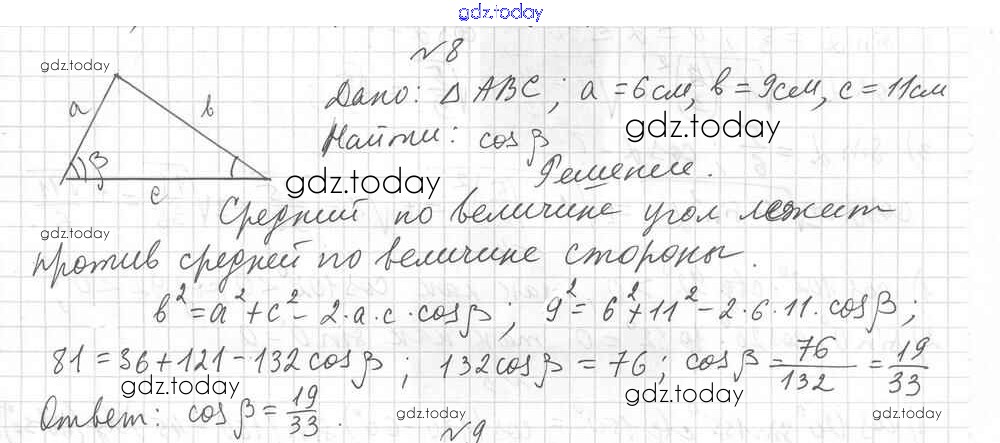 gdz.today
№8
gdz.today
a b β c
Дано: △ABC; a = 6см, в = 9см, c = 11см
gdz.today
Найти: cos β
Решение.
gdz.today
Средний по величине угол лежит
gdz.today
против средней по величине стороны.
в² = a² + c² - 2·a·c·cos β; 9² = 6² + 11² - 2·6·11·cos β;
81 = 36 + 121 - 132 cos β; 132 cos β = 76; cos β = 76/132 = 19/33
gdz.today
Ответ: cos β = 19/33.
gdz.today gdz.today
№9